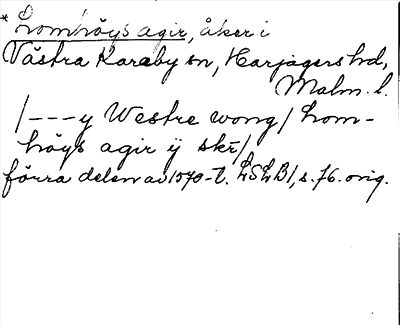 * Lomhöys agir, åker i
Västra Karaby sn, Harjagers hd,
Malm. l.
/---y Westre wong/ Lom-
höys agir ÿ skr̄/
förra delen av 1570-t. LSLB1, s. 76. orig.